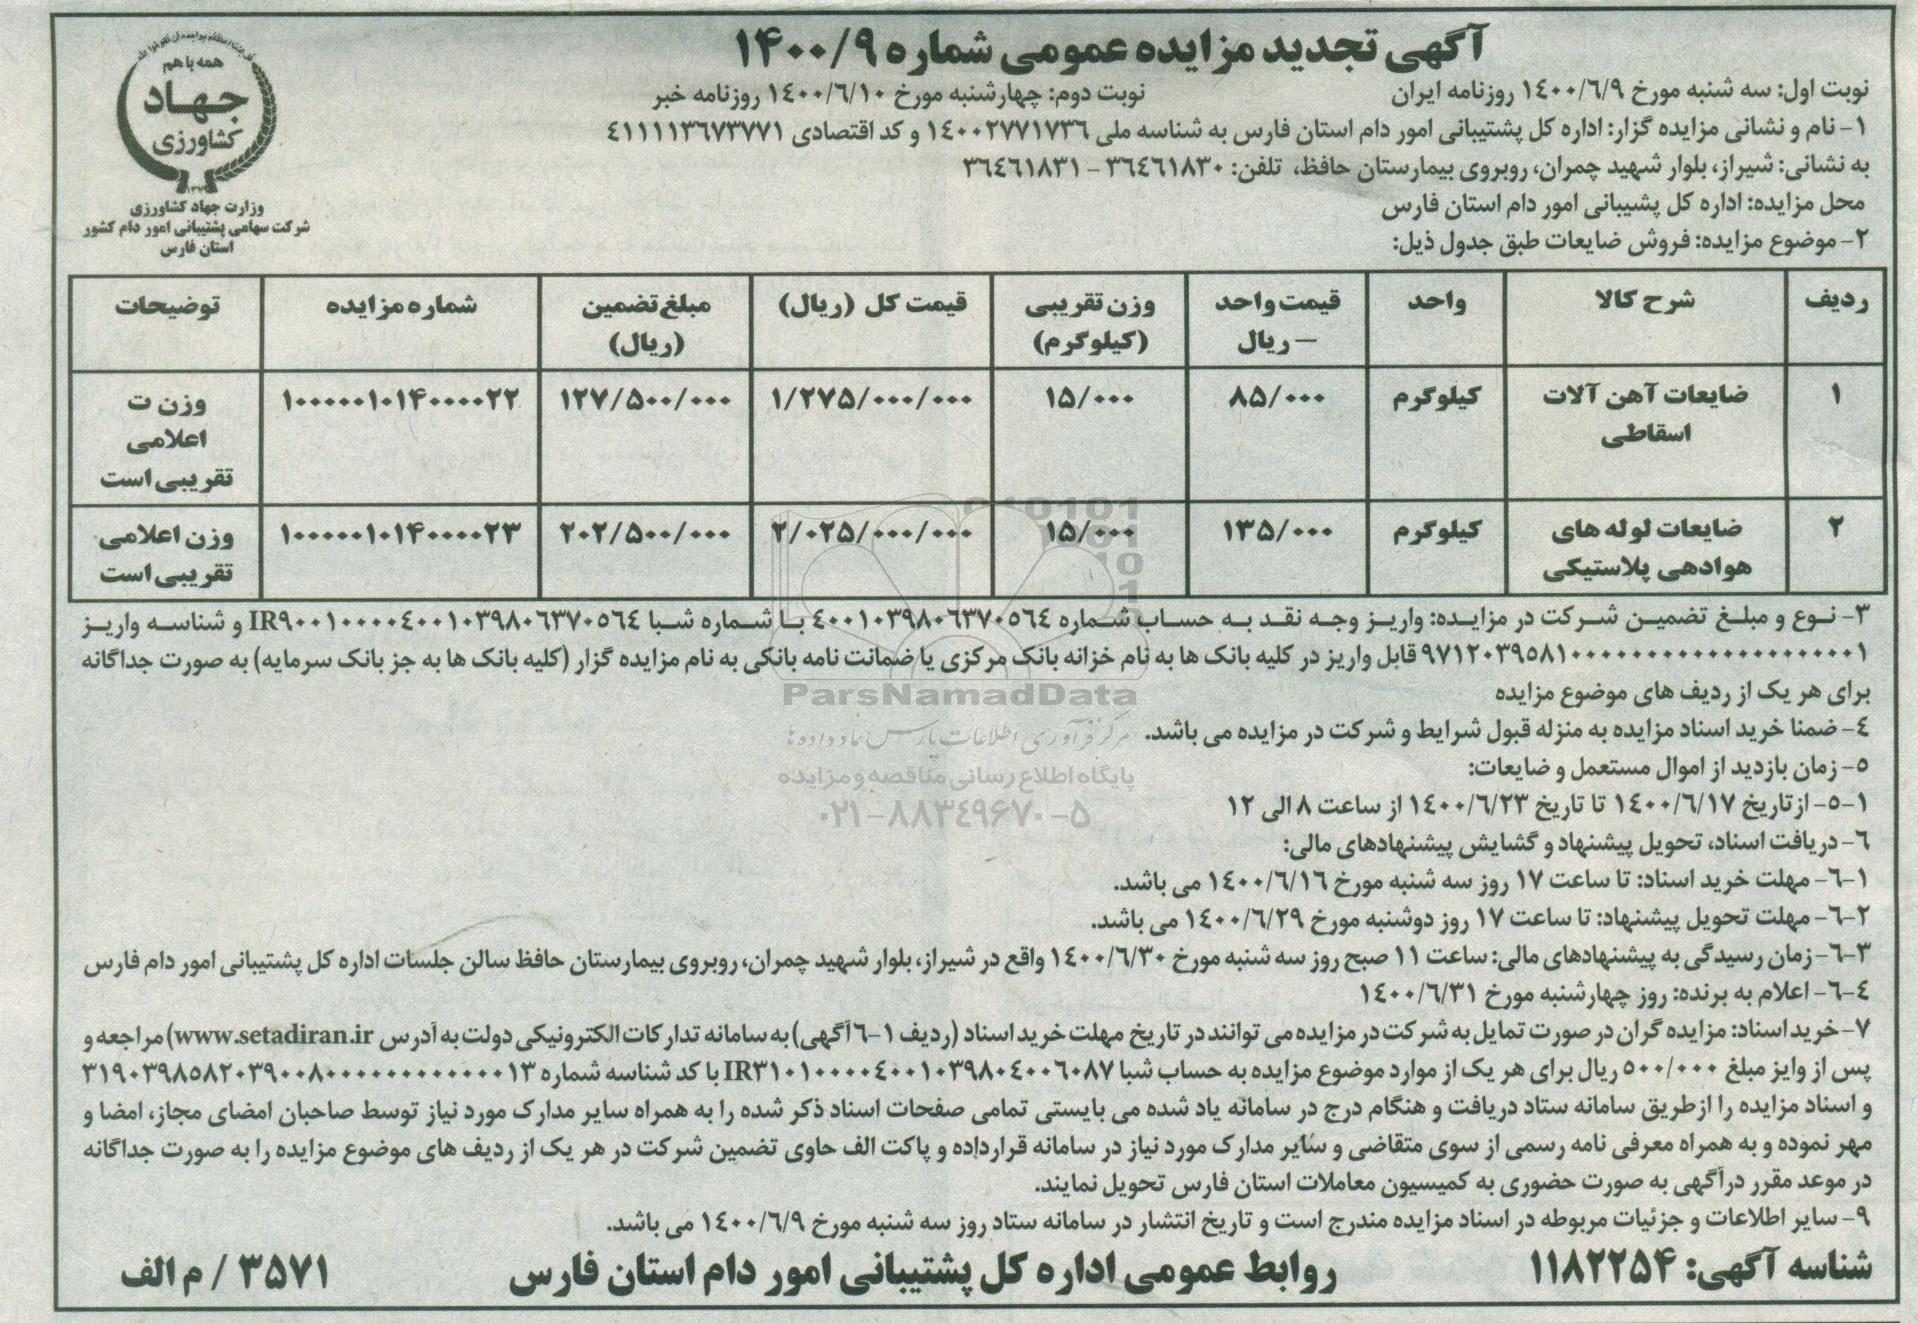 آگهی تجدید مزایده عمومی شماره ۱۴۰۰/۹
نوبت اول: سه شنبه مورخ ۱۴۰۰/۶/۹ روزنامه ایران
نوبت دوم: چهارشنبه مورخ ۱۴۰۰/۶/۱۰ روزنامه خبر
همه با هم
جهاد
کشاورزی
وزارت جهاد کشاورزی
شرکت سهامی پشتیبانی امور دام کشور
استان فارس
۱- نام و نشانی مزایده گزار: اداره کل پشتیبانی امور دام استان فارس به شناسه ملی ۱۴۰۰۲۷۷۱۷۳۶ و کد اقتصادی ۴۱۱۱۱۳۶۷۳۷۷۱
به نشانی: شیراز، بلوار شهید چمران، روبروی بیمارستان حافظ، تلفن: ۳۶۴۶۱۸۳۰ – ۳۶۴۶۱۸۳۱
محل مزایده: اداره کل پشیبانی امور دام استان فارس
۲- موضوع مزایده: فروش ضایعات طبق جدول ذیل:
ردیف شرح کالا واحد قیمت واحد – ریال وزن تقریبی (کیلوگرم) قیمت کل (ریال) مبلغ تضمین (ریال) شماره مزایده توضیحات
۱ ضایعات آهن آلات اسقاطی کیلوگرم ۸۵/۰۰۰ ۱۵/۰۰۰ ۱/۲۷۵/۰۰۰/۰۰۰ ۱۲۷/۵۰۰/۰۰۰ ۱۰۰۰۰۰۱۰۱۴۰۰۰۰۲۲ وزن ت اعلامی تقریبی است
۲ ضایعات لوله های هوادهی پلاستیکی کیلوگرم ۱۳۵/۰۰۰ ۱۵/۰۰۰ ۲/۰۲۵/۰۰۰/۰۰۰ ۲۰۲/۵۰۰/۰۰۰ ۱۰۰۰۰۰۱۰۱۴۰۰۰۰۲۳ وزن اعلامی تقریبی است
۳- نوع و مبلغ تضمین شرکت در مزایده: واریز وجه نقد به حساب شماره ۴۰۰۱۰۳۹۸۰۶۳۷۰۵۶۴ با شماره شبا IR۹۰۰۱۰۰۰۰۴۰۰۱۰۳۹۸۰۶۳۷۰۵۶۴ و شناسه واریز
قابل واریز در کلیه بانک ها به نام خزانه بانک مرکزی یا ضمانت نامه بانکی به نام مزایده گزار (کلیه بانک ها به جز بانک سرمایه) به صورت جداگانه
برای هر یک از ردیف های موضوع مزایده
۴- ضمنا خرید اسناد مزایده به منزله قبول شرایط و شرکت در مزایده می باشد.
۵- زمان بازدید از اموال مستعمل و ضایعات:
۵-۱- از تاریخ ۱۴۰۰/۶/۱۷ تا تاریخ ۱۴۰۰/۶/۲۳ از ساعت ۸ الی ۱۲
۶- دریافت اسناد، تحویل پیشنهاد و گشایش پیشنهادهای مالی:
۶-۱- مهلت خرید اسناد: تا ساعت ۱۷ روز سه شنبه مورخ ۱۴۰۰/۶/۱۶ می باشد.
۶-۲- مهلت تحویل پیشنهاد: تا ساعت ۱۷ روز دوشنبه مورخ ۱۴۰۰/۶/۲۹ می باشد.
۶-۳- زمان رسیدگی به پیشنهادهای مالی: ساعت ۱۱ صبح روز سه شنبه مورخ ۱۴۰۰/۶/۳۰ واقع در شیراز، بلوار شهید چمران، روبروی بیمارستان حافظ سالن جلسات اداره کل پشتیبانی امور دام فارس
۶-۴- اعلام به برنده: روز چهارشنبه مورخ ۱۴۰۰/۶/۳۱
۷- خرید اسناد: مزایده گران در صورت تمایل به شرکت در مزایده می توانند در تاریخ مهلت خرید اسناد (ردیف ۱-۶ آگهی) به سامانه تدارکات الکترونیکی دولت به آدرس www.setadiran.ir) مراجعه و
پس از وایز مبلغ ۵۰۰/۰۰۰ ریال برای هر یک از موارد موضوع مزایده به حساب شبا IR۳۱۰۱۰۰۰۰۴۰۰۱۰۳۹۸۰۴۰۰۶۰۸۷ با کد شناسه شماره
و اسناد مزایده را از طریق سامانه ستاد دریافت و هنگام درج در سامانه یاد شده می بایستی تمامی صفحات اسناد ذکر شده را به همراه سایر مدارک مورد نیاز توسط صاحبان امضای مجاز، امضا و
مهر نموده و به همراه معرفی نامه رسمی از سوی متقاضی و سایر مدارک مورد نیاز در سامانه قرارداده و پاکت الف حاوی تضمین شرکت در هر یک از ردیف های موضوع مزایده را به صورت جداگانه
در موعد مقرر در آگهی به صورت حضوری به کمیسیون معاملات استان فارس تحویل نمایند.
۹- سایر اطلاعات و جزئیات مربوطه در اسناد مزایده مندرج است و تاریخ انتشار در سامانه ستاد روز سه شنبه مورخ ۱۴۰۰/۶/۹ می باشد.
شناسه آگهی: ۱۱۸۲۲۵۴ روابط عمومی اداره کل پشتیبانی امور دام استان فارس ۳۵۷۱ / م الف
ParsNamadData
مرکز فرآوری اطلاعات پارس نماد داده ها
پایگاه اطلاع رسانی مناقصه و مزایده
۰۲۱-۸۸۳۴۹۶۷۰-۵